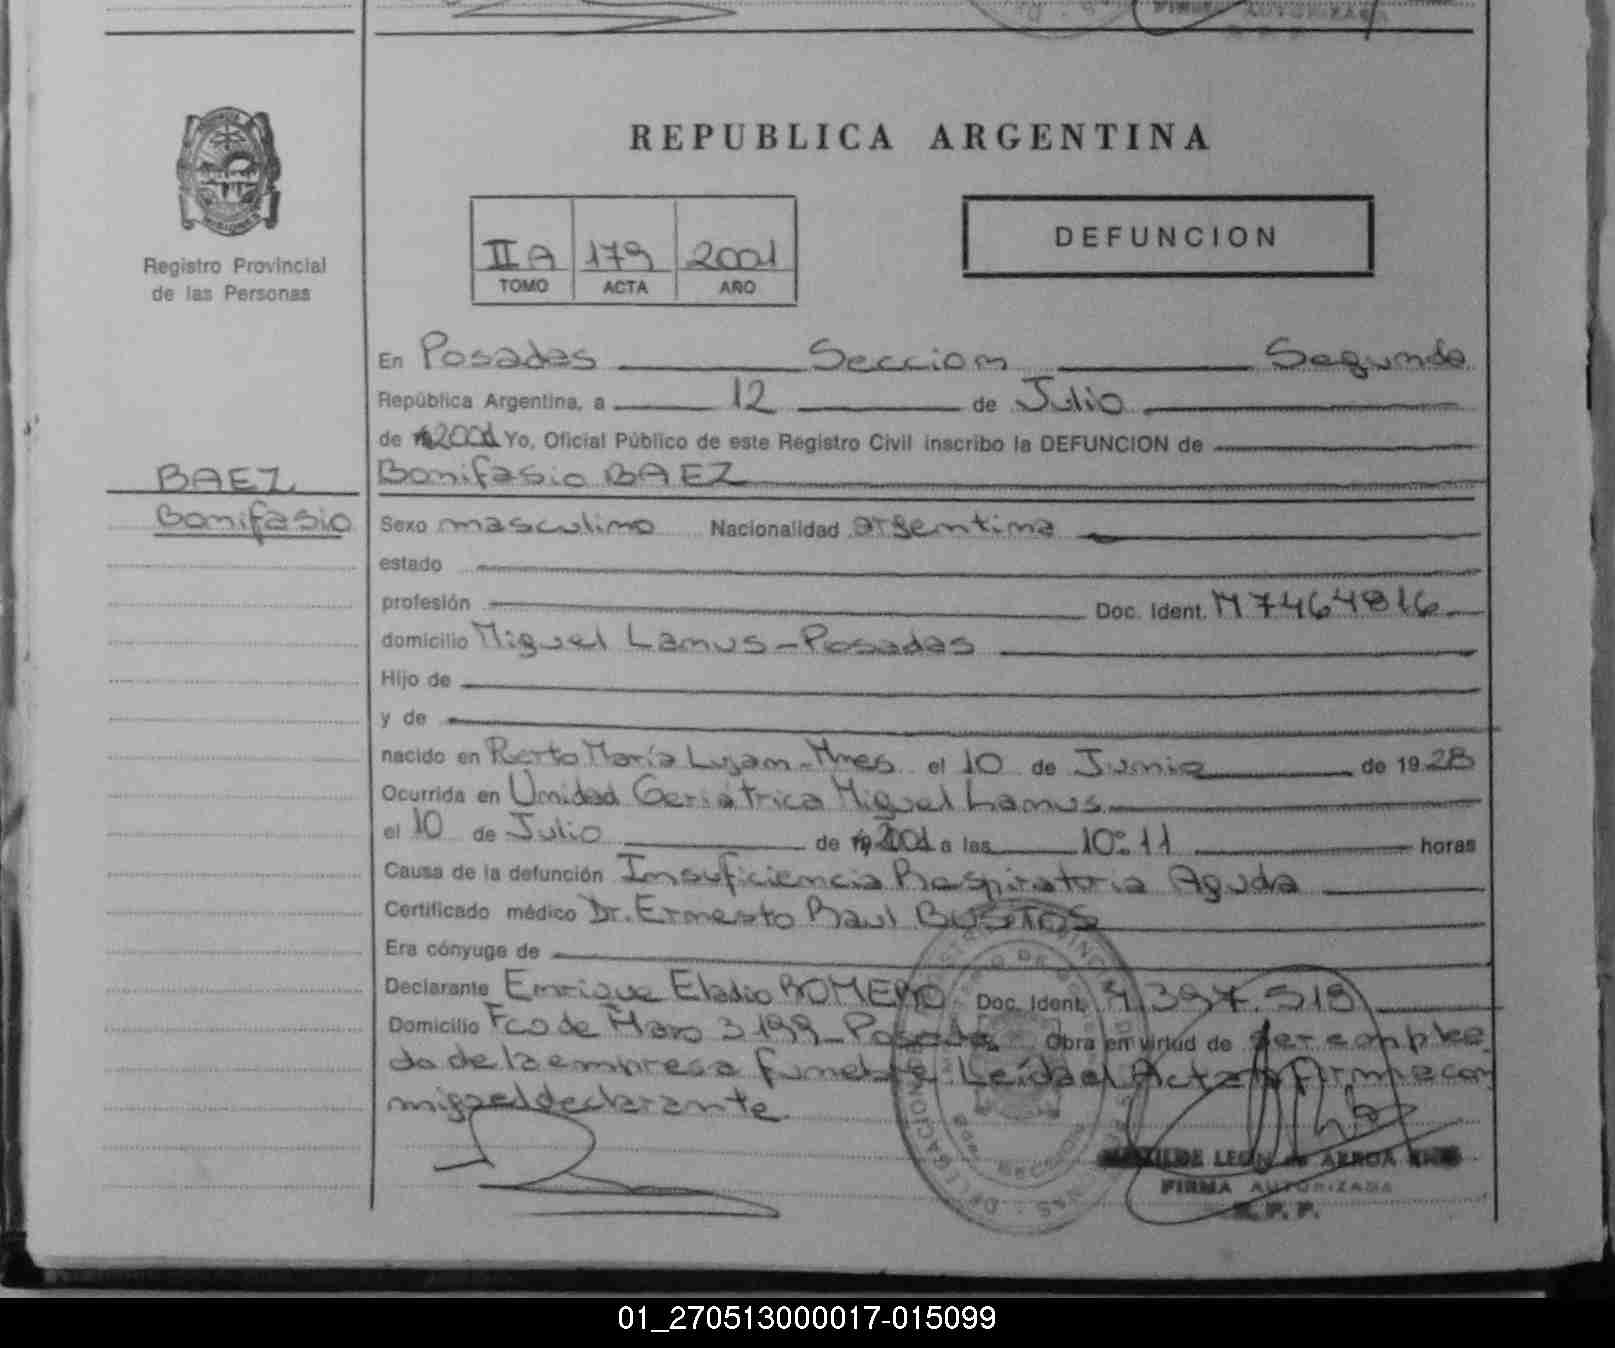 REPUBLICA ARGENTINA
Registro Provincial
de las Personas
II A 179 2001
TOMO ACTA AÑO
DEFUNCION
En Posadas Seccion Segunda
República Argentina, a 12 de Julio
de 2001 Yo, Oficial Público de este Registro Civil inscribo la DEFUNCION de
BAEZ
Bonifasio
Bonifasio BAEZ
Sexo masculino Nacionalidad argentina
estado
profesión Doc. Ident. M 7464816
domicilio Miguel Lanus-Posadas
Hijo de
y de
nacido en Puerto María Lujan-Mnes el 10 de Junio de 1928
Ocurrida en Unidad Geriatrica Miguel Lanus
el 10 de Julio de 2001 a las 10:11 horas
Causa de la defunción Insuficiencia Respiratoria Aguda
Certificado médico Dr. Ernesto Raul BUSTOS
Era cónyuge de
Declarante Enrique Eladio ROMERO Doc. Ident. 7.397.519
Domicilio Fco de Haro 3199-Posadas Obra en virtud de ser emplea
do de la empresa funebre. Leída el Acta, firma con
migo el declarante.
LEON de ARROA
FIRMA AUTORIZADA
R. P. P.
01_270513000017-015099